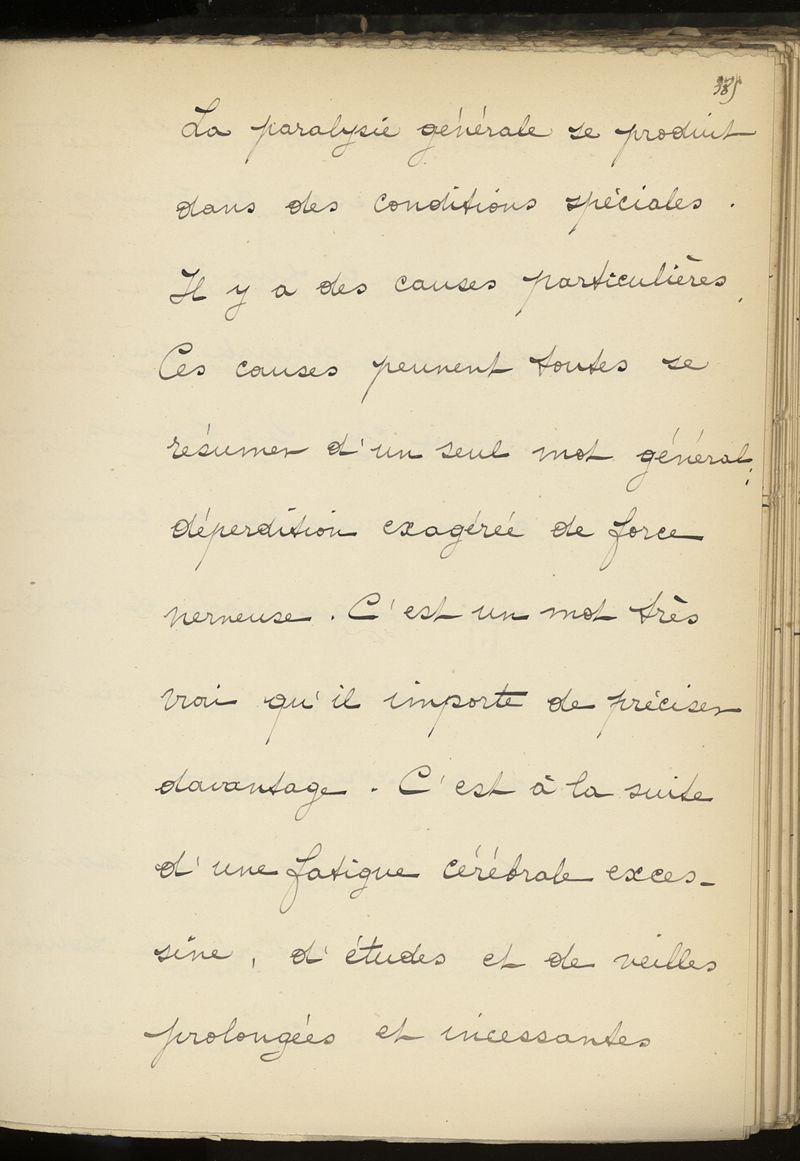 385
La paralysie générale se produit
dans des conditions spéciales .
Il y a des causes particulières,
Ces causes peuvent toutes se
résumer d'un seul mot général:
déperdition exagérée de force
nerveuse . C'est un mot très
vrai qu'il importe de préciser
davantage . C'est à la suite
d'une fatigue cérébrale exces-
sive , d'études et de veilles
prolongées et incessantes